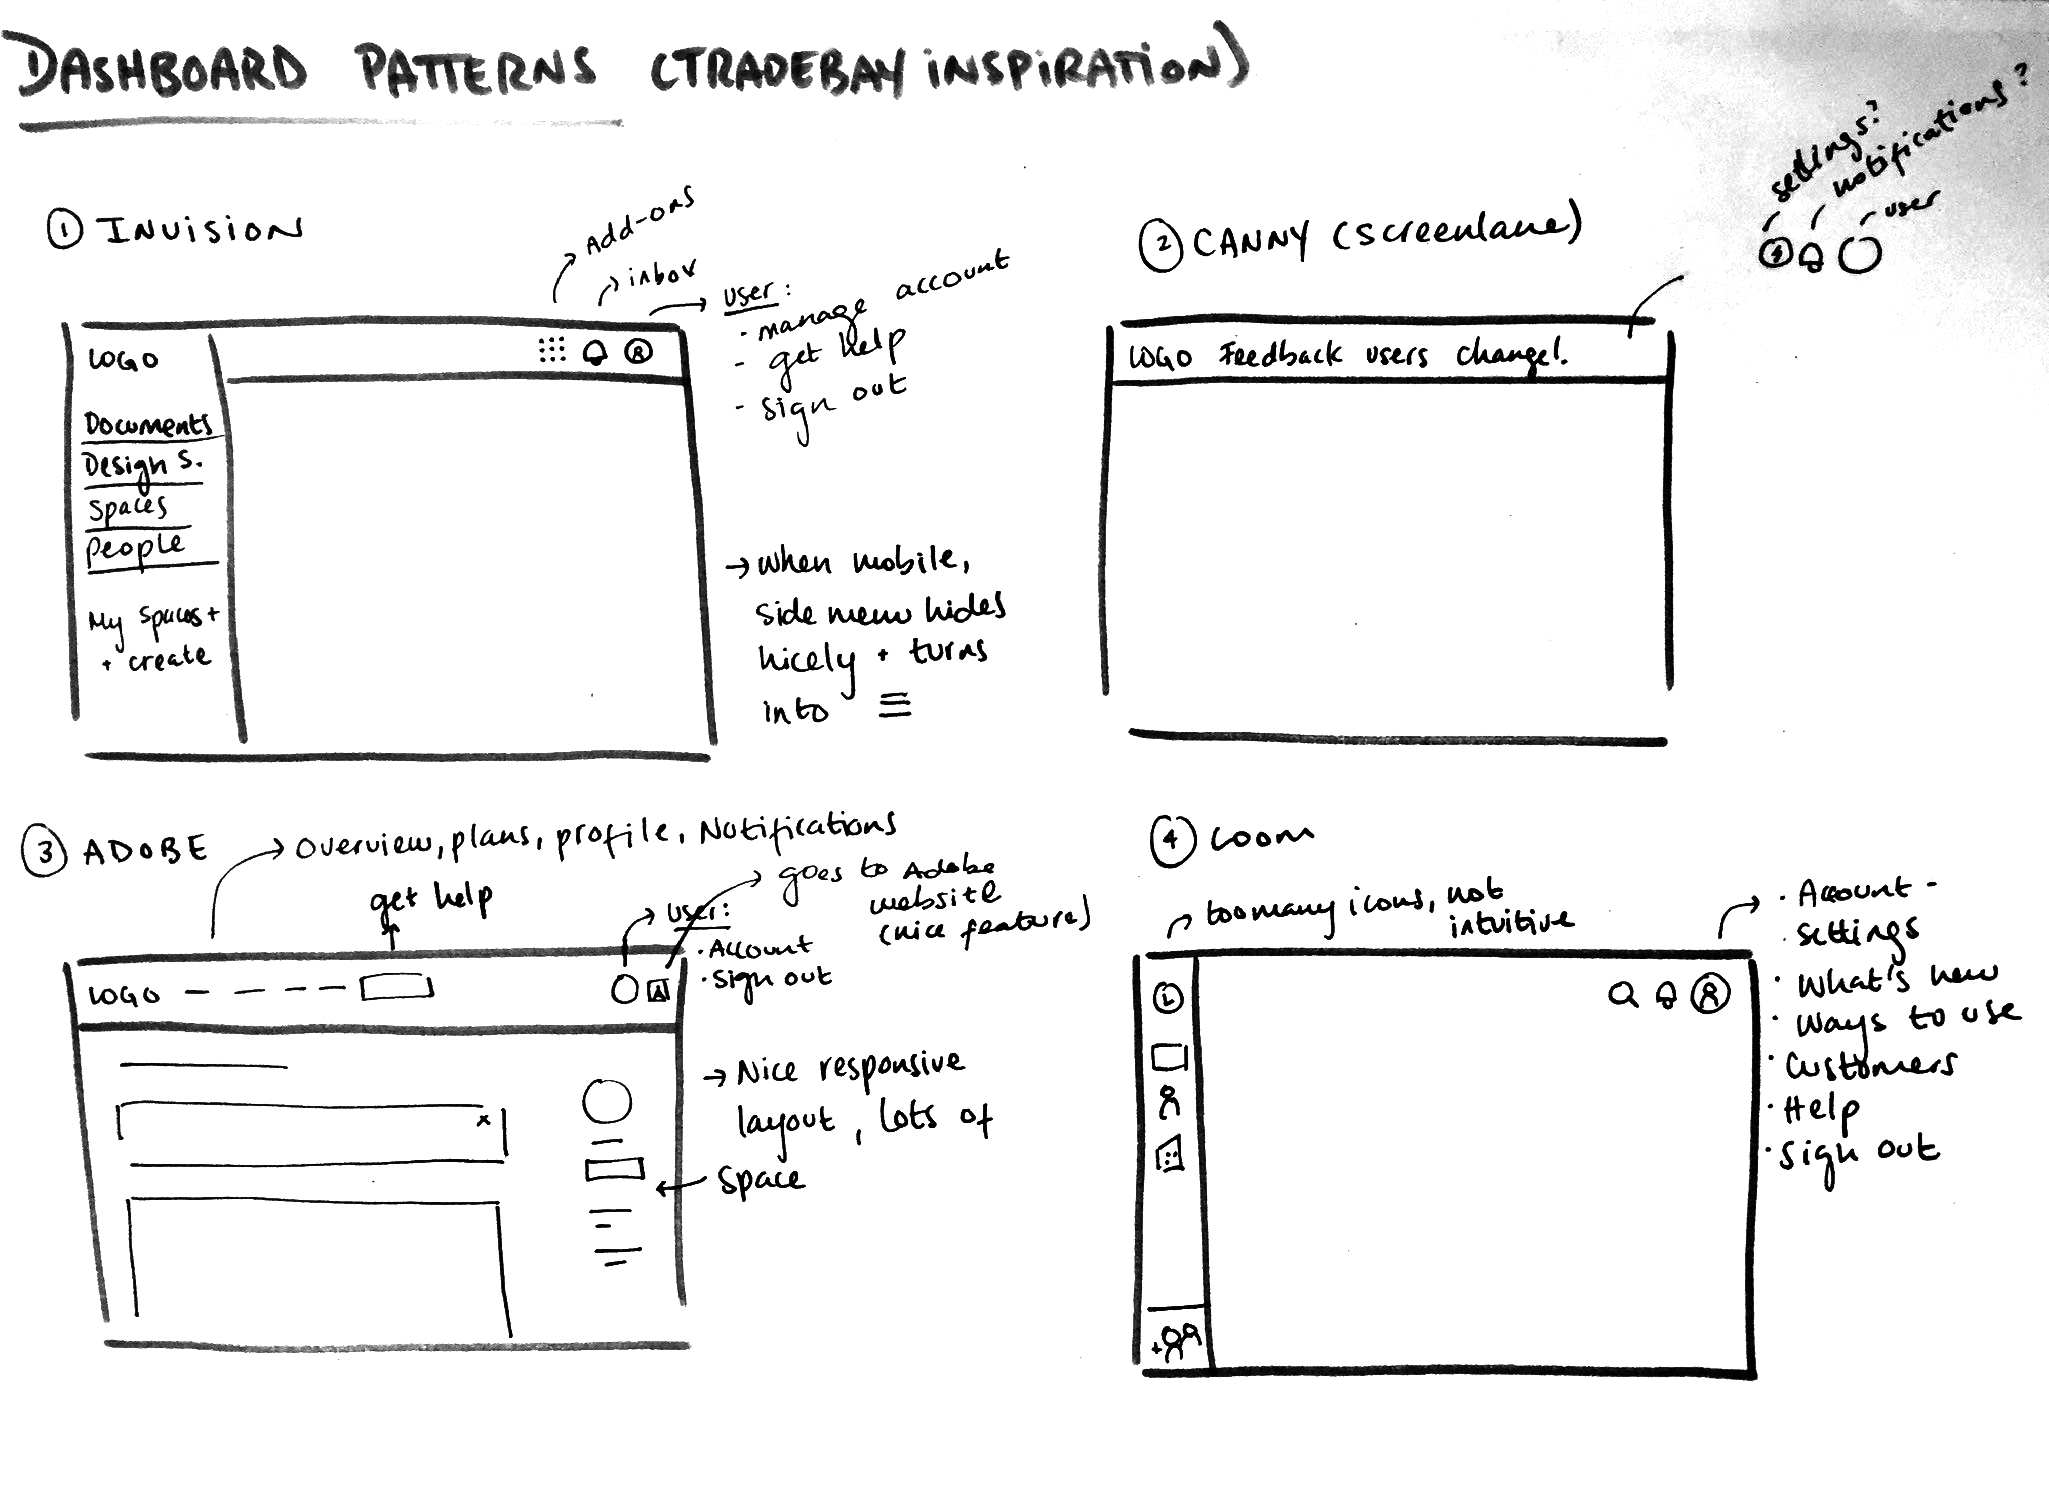 DASHBOARD PATTERNS (TRADEBAY INSPIRATION)
① INVISION
Add-ons
inbox
user:
· manage account
- get help
- sign out
LOGO
Documents
Design S.
Spaces
People
My spaces +
+ create
→ When mobile,
side menu hides
nicely + turns
into ☰
② CANNY (screenlane)
settings?
notifications?
user
LOGO Feedback users changel.
③ ADOBE
overview, plans, profile, Notifications
get help
user:
· Account
· Sign out
goes to Adobe
website
(nice feature)
LOGO
A
→ Nice responsive
layout, lots of
space
④ LOOM
too many icons, not
intuitive
L
· Account -
· settings
· What's new
· Ways to use
· Customers
· Help
· Sign out